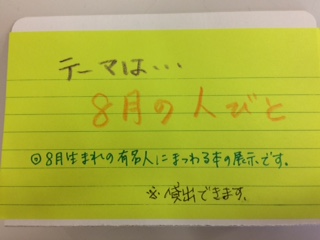 テーマは…
8月の人びと
◎8月生まれの有名人にまつわる本の展示です。
※貸出できます。